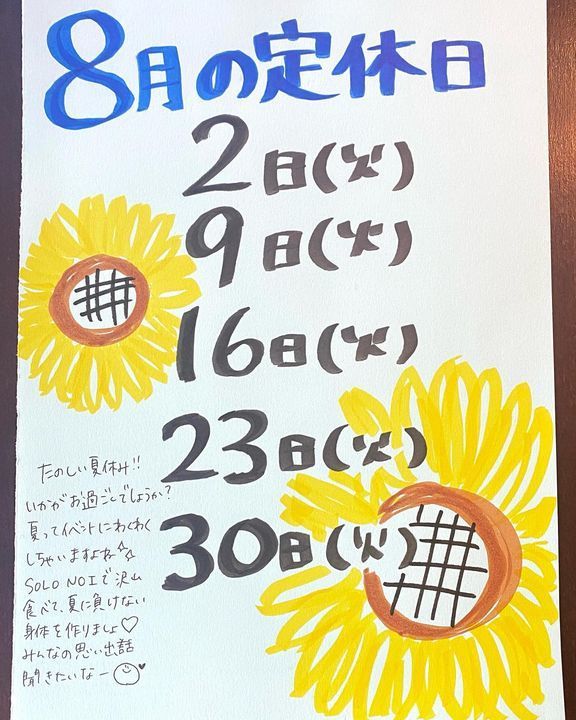 8月の定休日
2日(火)
9日(火)
16日(火)
23日(火)
30日(火)
たのしい夏休み!!
いかがお過ごしでしょうか?
夏ってイベントにわくわく
しちゃいますよね☆
SOLO NOIで沢山
食べて、夏に負けない
身体を作りましょ♡
みんなの思い出話
聞きたいなー